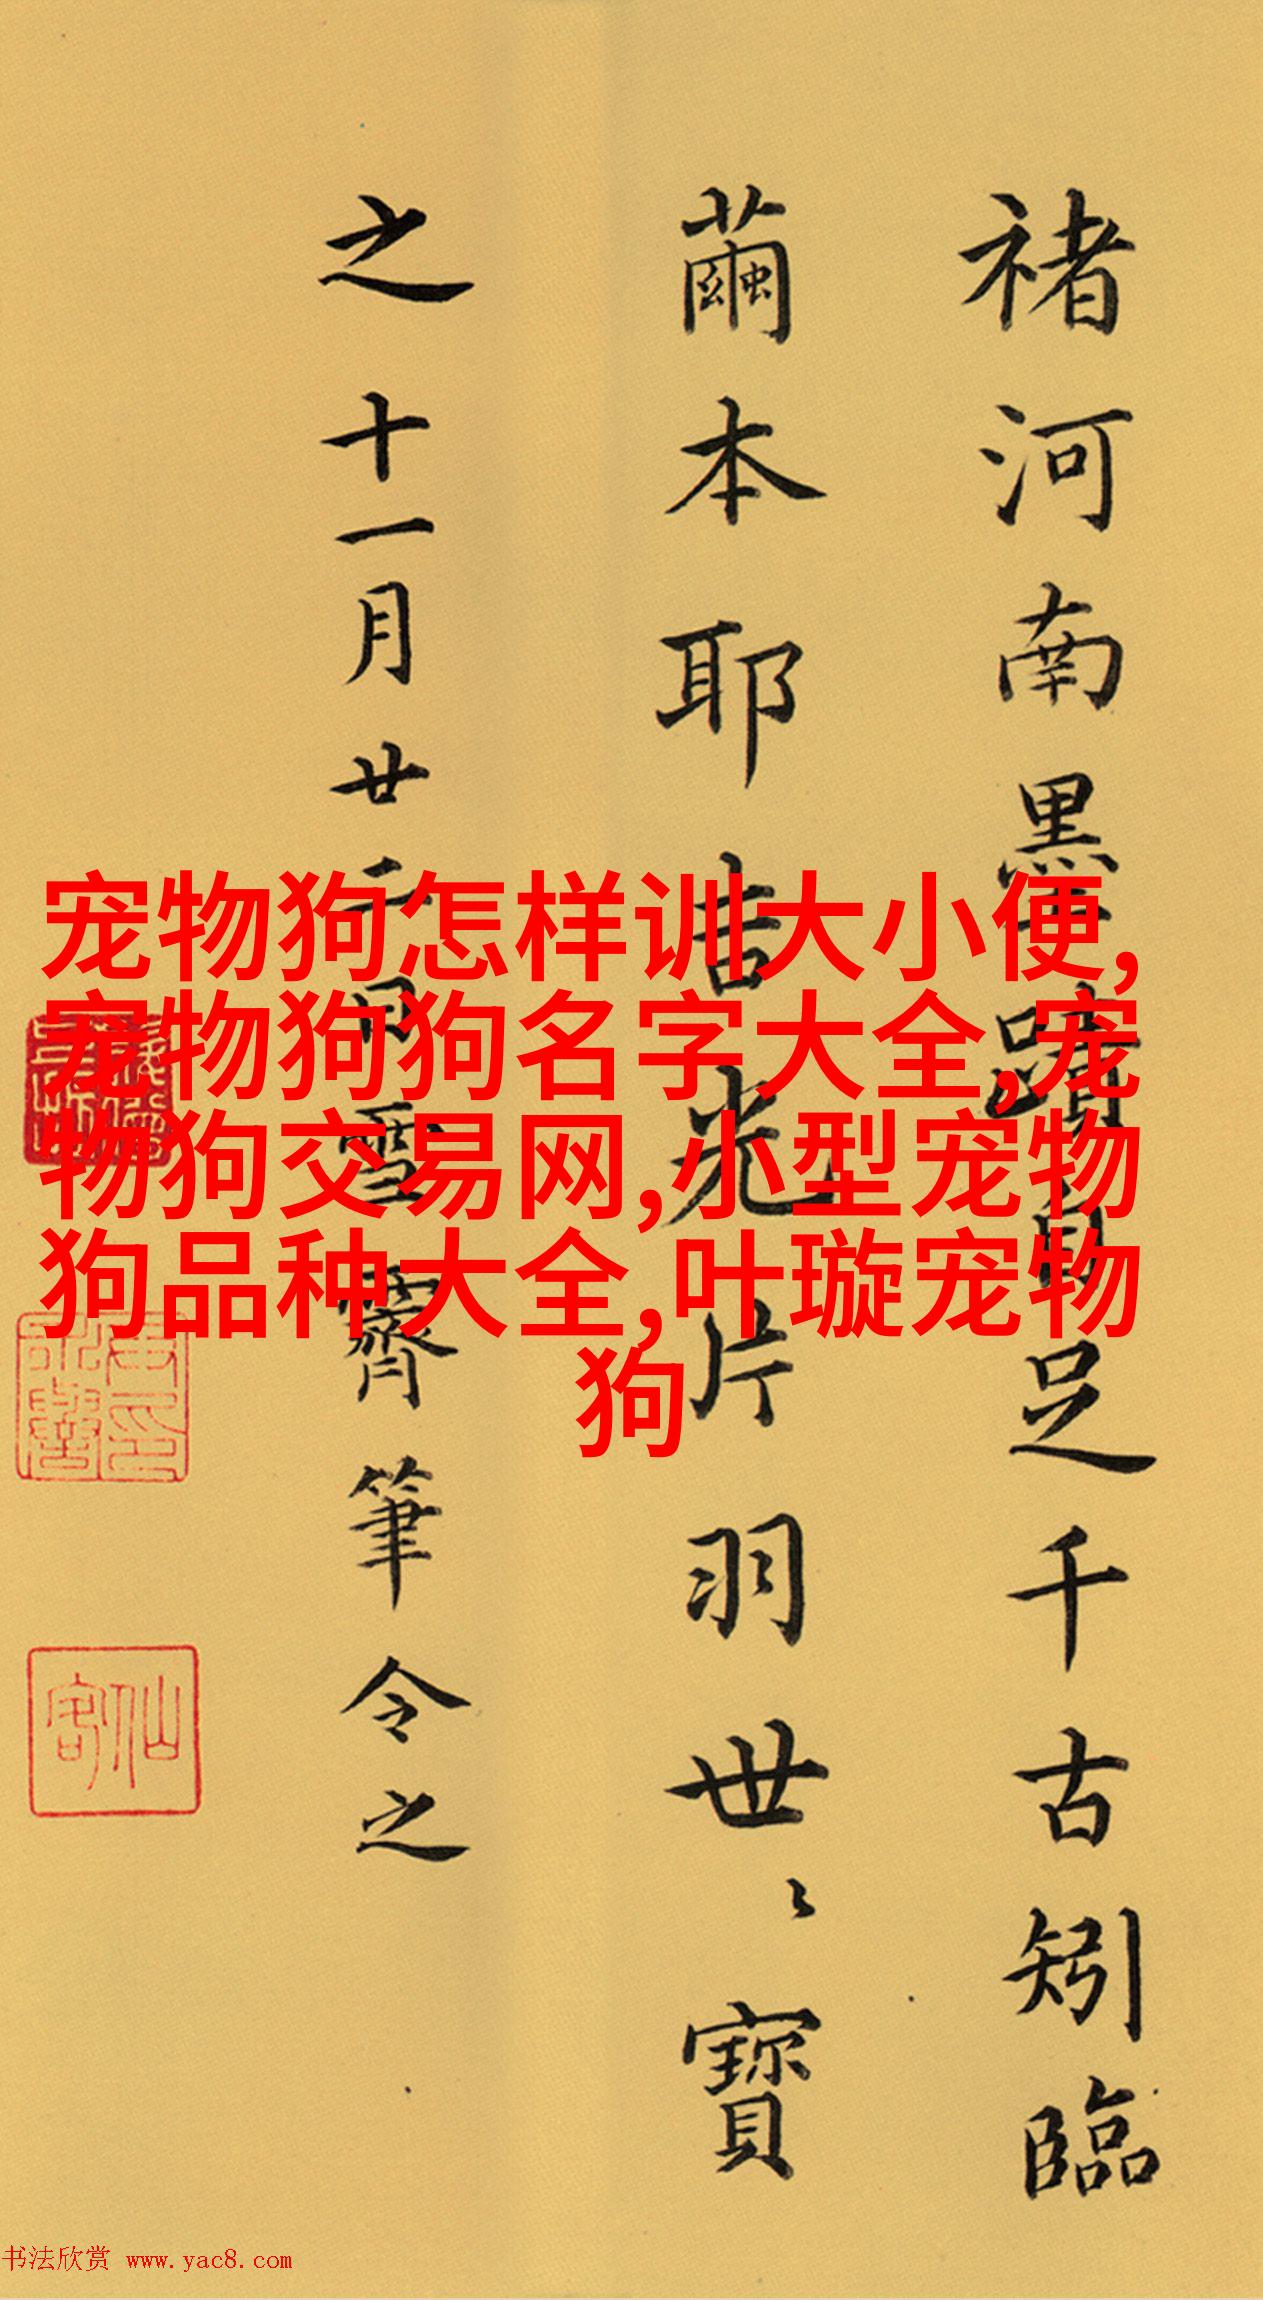 褚河南墨蹟自足千古矧臨
繭本耶吉光片羽世〻寶
之十一月廿二日雪霽筆令之
宠物狗怎样训大小便,
宠物狗狗名字大全,宠
物狗交易网,小型宠物
狗品种大全,叶璇宠物
狗
仙客
书法欣赏 www.yac8.com